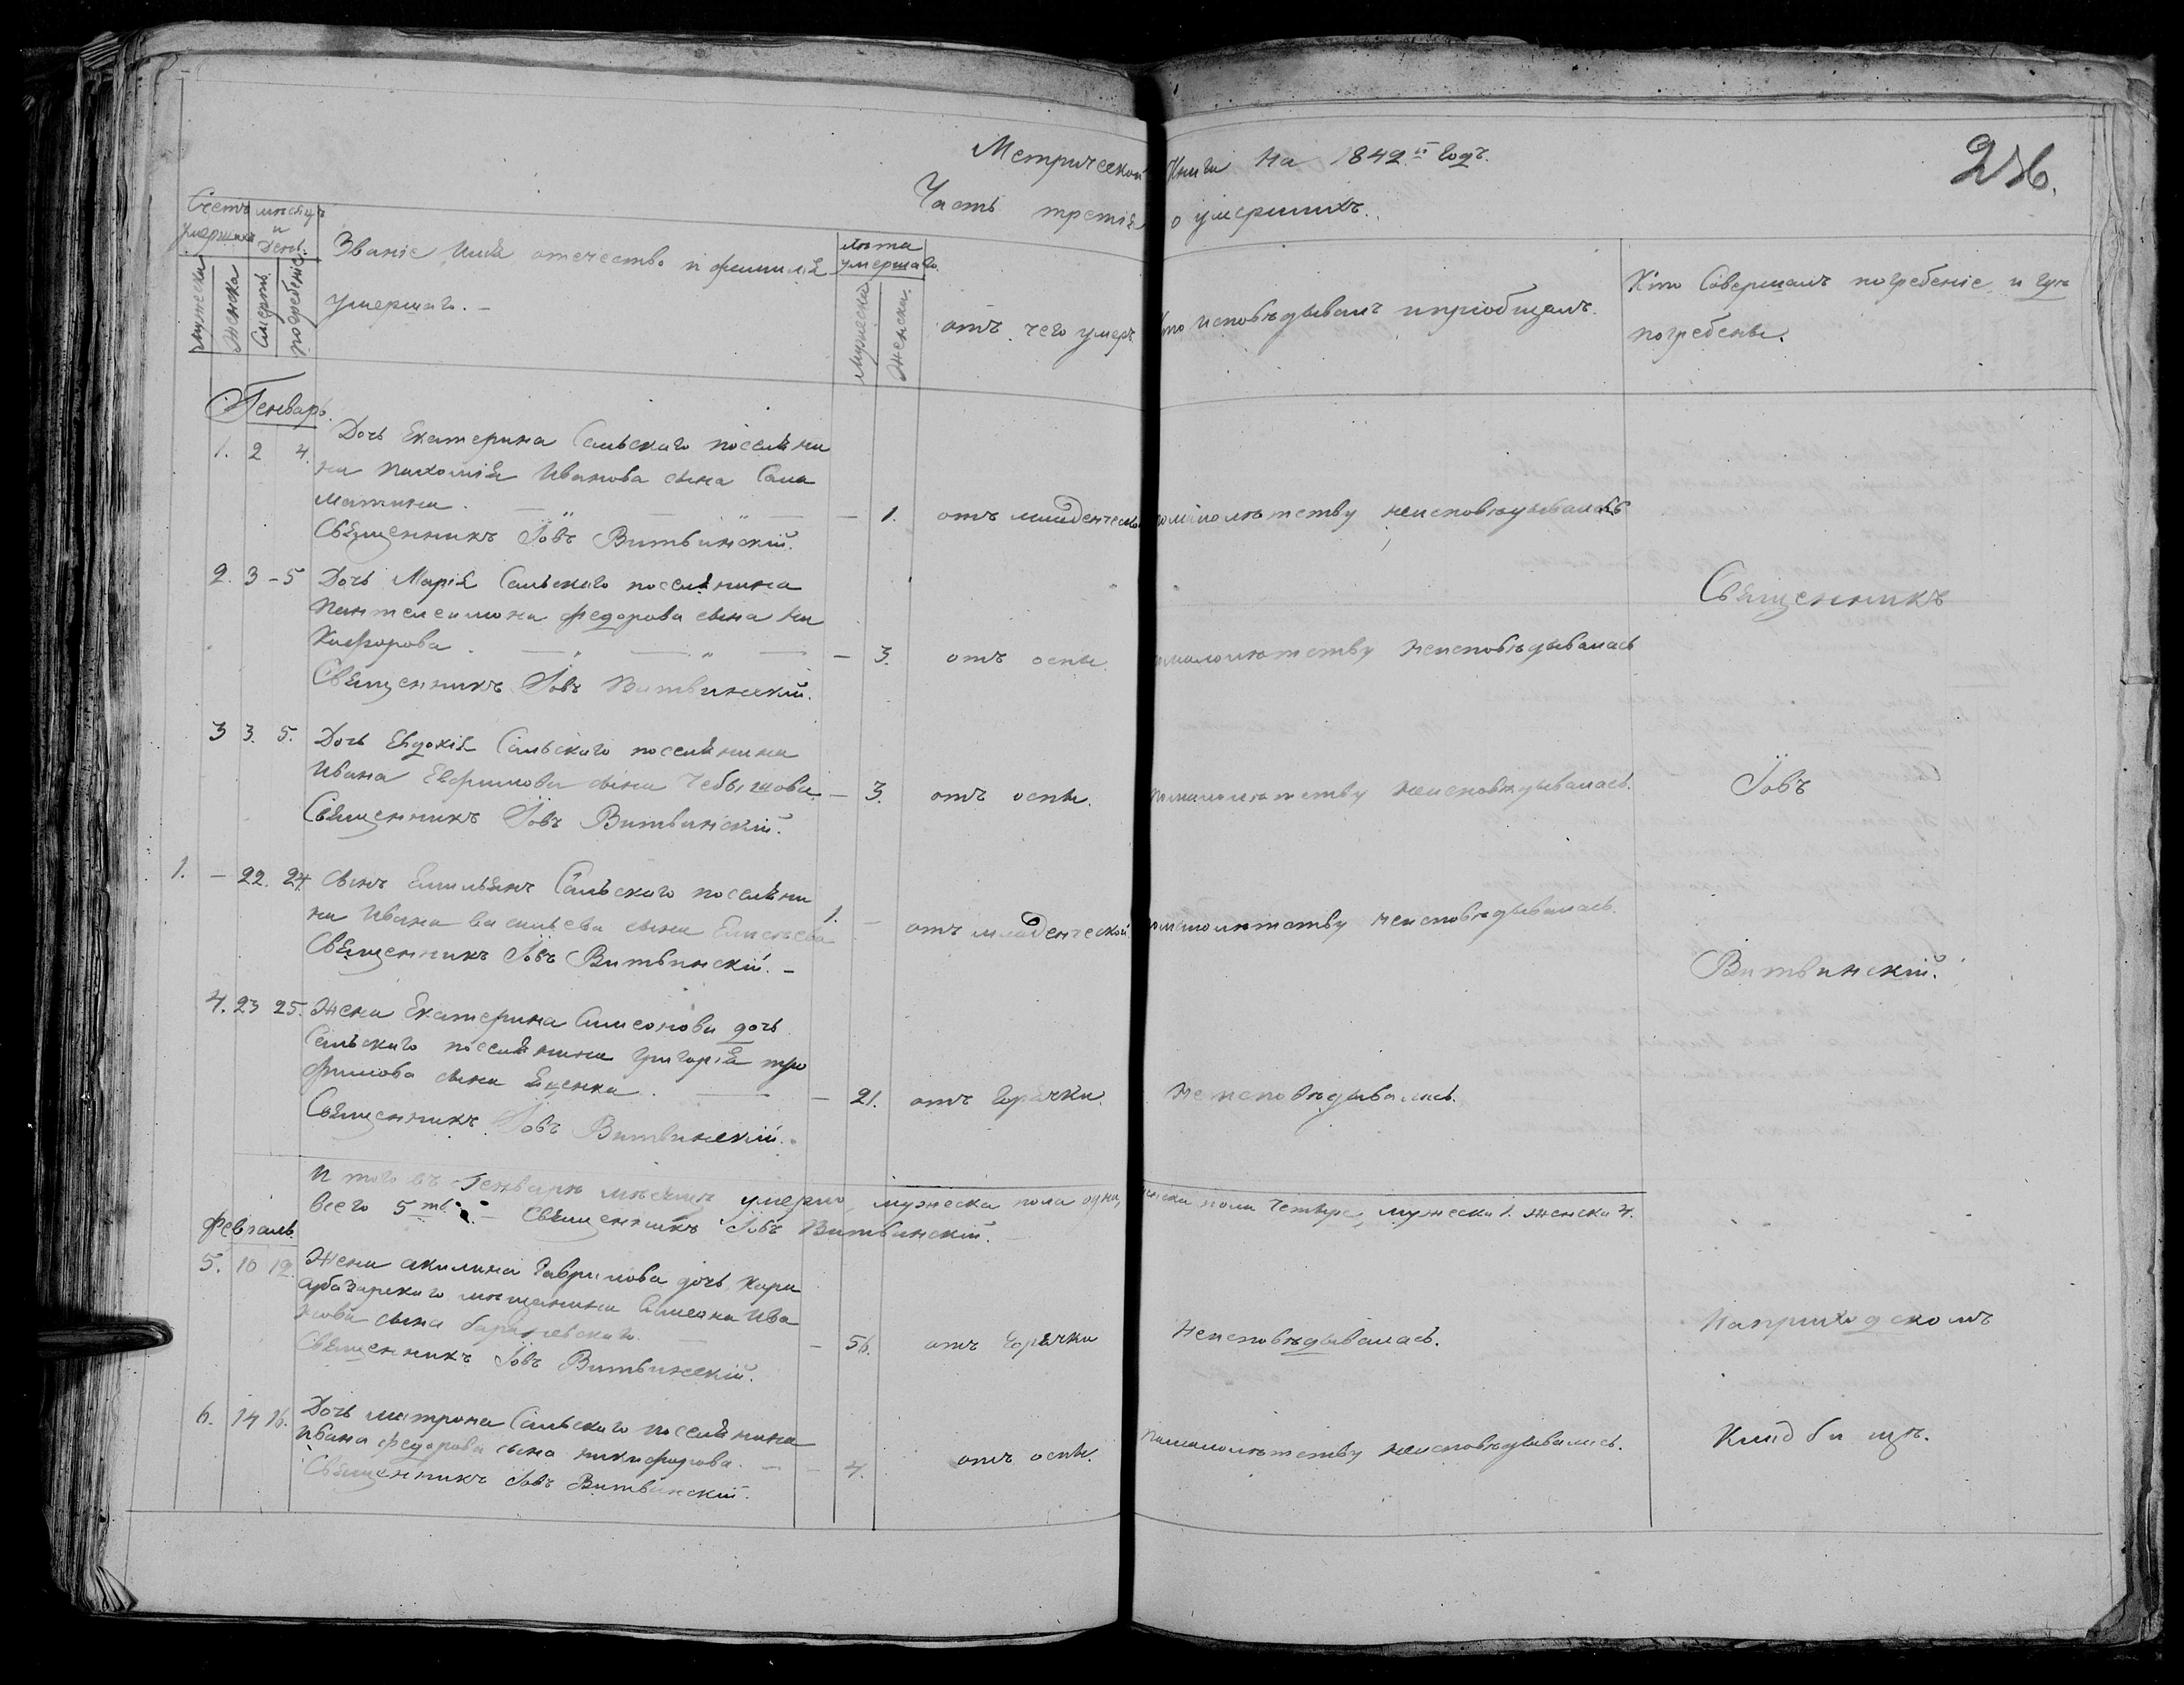 Метрической Книги на 1842.й Годъ.
Часть третія о умершихъ.
Счетъ умершихъ
мѣсяцъ и День.
Званіе, имя, отечество и фамилія
умершаго. -
лѣта умершаго.
отъ чего умеръ
Кто исповѣдывалъ и пріобщалъ.
Кто Совершалъ погребеніе, и гдѣ
погребены.
мужеска
Женска
Смерти.
погребеніе.
Мужеска
Женска.
Генварь.
1. 2 4. Дочь Екатерина Сальскаго поселяни
на Пахомія Иванова сына Сала
матина. — 1. отъ младенческой помалолѣтству неисповѣдывалась
Священникъ Іовъ Витвинскій.
2. 3 - 5 Дочь Марія Сальскаго поселянина
Пантелеимона федорова сына Ни
Кифорова — 3. отъ оспы. помалолѣтству неисповѣдывалась
Священникъ Іовъ Витвинскій.
Священникъ
3 3. 5. Дочь Евдокія Сальскаго поселянина
Ивана Евфимова сына Чебышова — 3. отъ оспы. помалолѣтству неисповѣдывалась.
Священникъ Іовъ Витвинскій.
Іовъ
1. — 22. 24. Сынъ Емильянъ Сальскаго поселяни
на Ивана васильева сына Елисѣева 1. — отъ младенческой помалолѣтству неисповѣдывалась.
Священникъ Іовъ Витвинскій. -
Витвинскій.
4. 23 25. Жена Екатерина Симеонова дочь
Сальскаго поселянина григорія тро
фимова сына Яценка. — 21. отъ Горячки. неисповѣдывалась.
Священникъ Іовъ Витвинскій.
И того въ Генварѣ мѣсяцѣ умерло мужеска пола одна, женска пола Четыре, мужеска 1. женска 4.
всего 5ть. - Священникъ Іовъ Витвинскій.
Февраль
5. 10 12. Жена акилина Гаврилова дочь, кара
субазарскаго мѣщанина Симеона Ива
нова сына — 56. отъ Горячки неисповѣдывалась.
Священникъ Іовъ Витвинскій.
Наприходскомъ
6. 14 16. Дочь матрона Сальскаго поселянина
Ивана федорова сына никифорова. — 4. отъ оспы. помалолѣтству неисповѣдывалась.
Священникъ Іовъ Витвинскій.
Кладбищѣ.